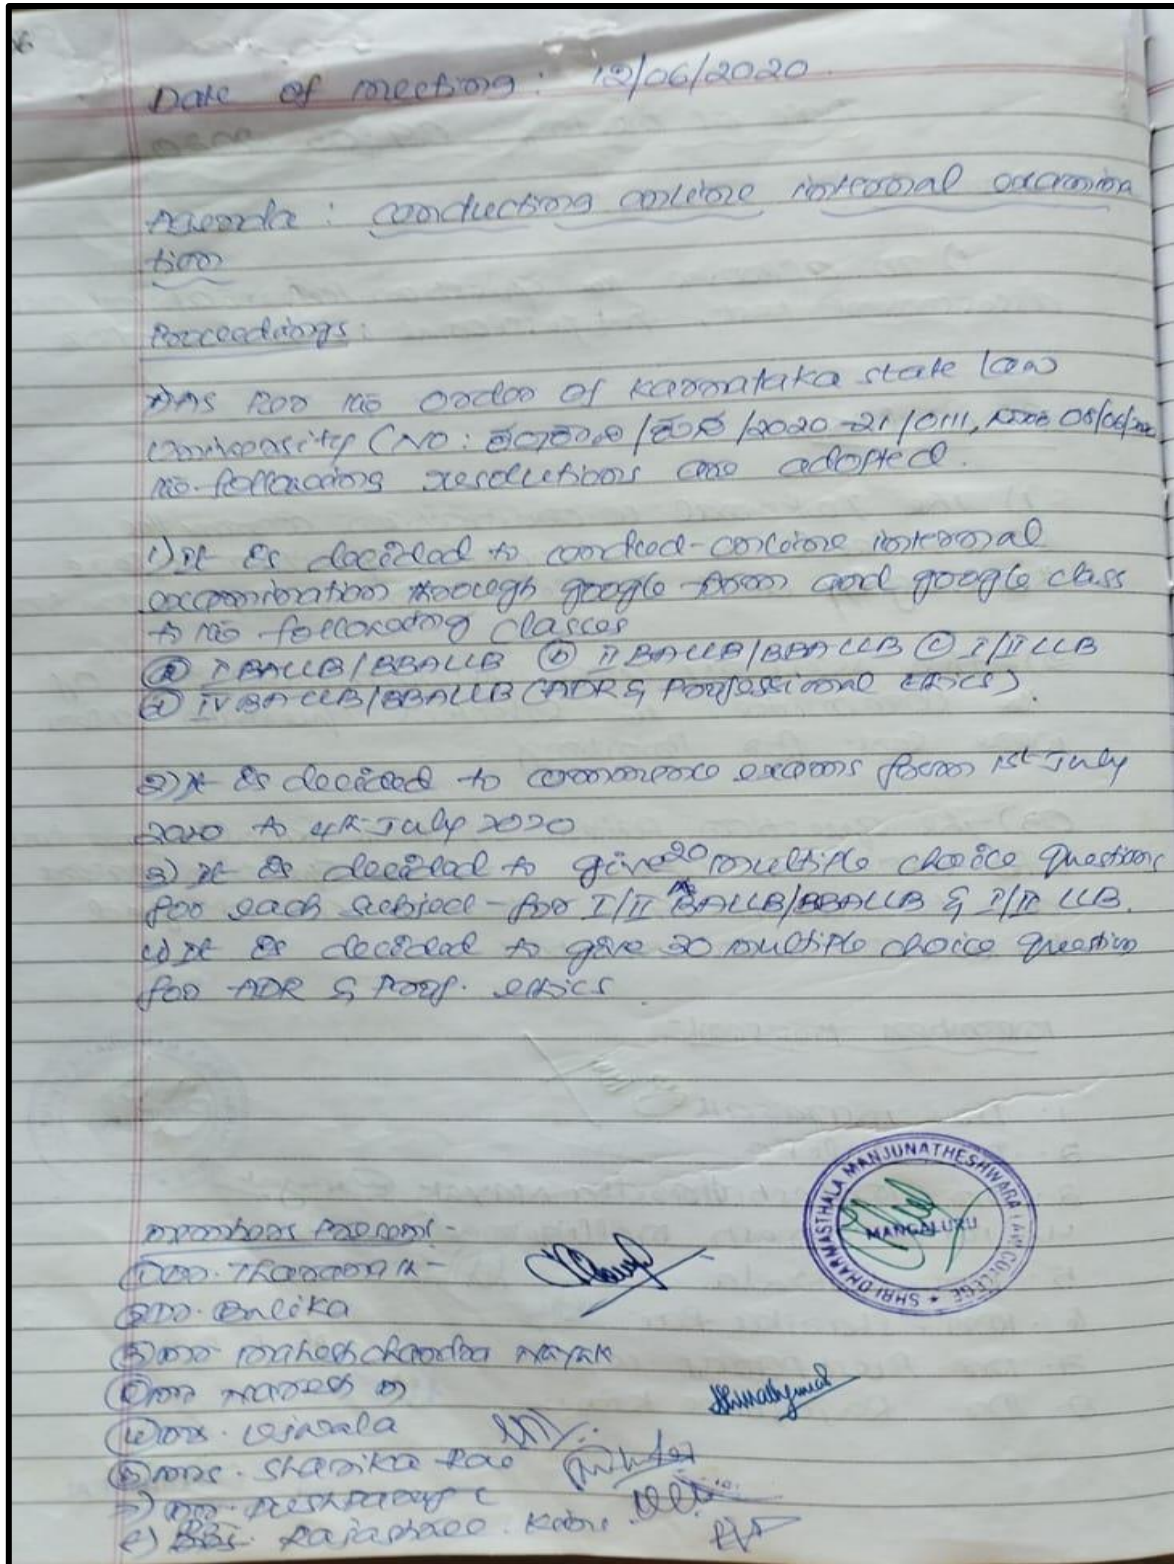 Date of meeting: 12/06/2020
Agenda: conducting online internal examina
tion
Proceedings:
As per the order of Karnataka state law
University (NO: /2020-21/0111, 05/06/
the following resolutions are adopted.
1) It is decided to online internal
examination through google form and google class
to the following classes
(a) I BALLB/BBALLB (b) II BALLB/BBALLB (c) I/II LLB
(d) IV BALLB/BBALLB (ADR & Professional Ethics).
2) It is decided to commence exams from 1st July
2020 to 4th July 2020
3) It is decided to give 20 multiple choice questions
for each subject - for I/II BALLB/BBALLB & I/II LLB.
4) It is decided to give 20 multiple choice question
for ADR & Prof. ethics
SHRI DHARMASTHALA MANJUNATHESHWARA LAW COLLEGE ★
MANGALURU
Members Present -
Dr. Tharanath -
Dr. Balika
Mahesh Chandra Nayak
Naresh M
Sharika Rao
Rajashree